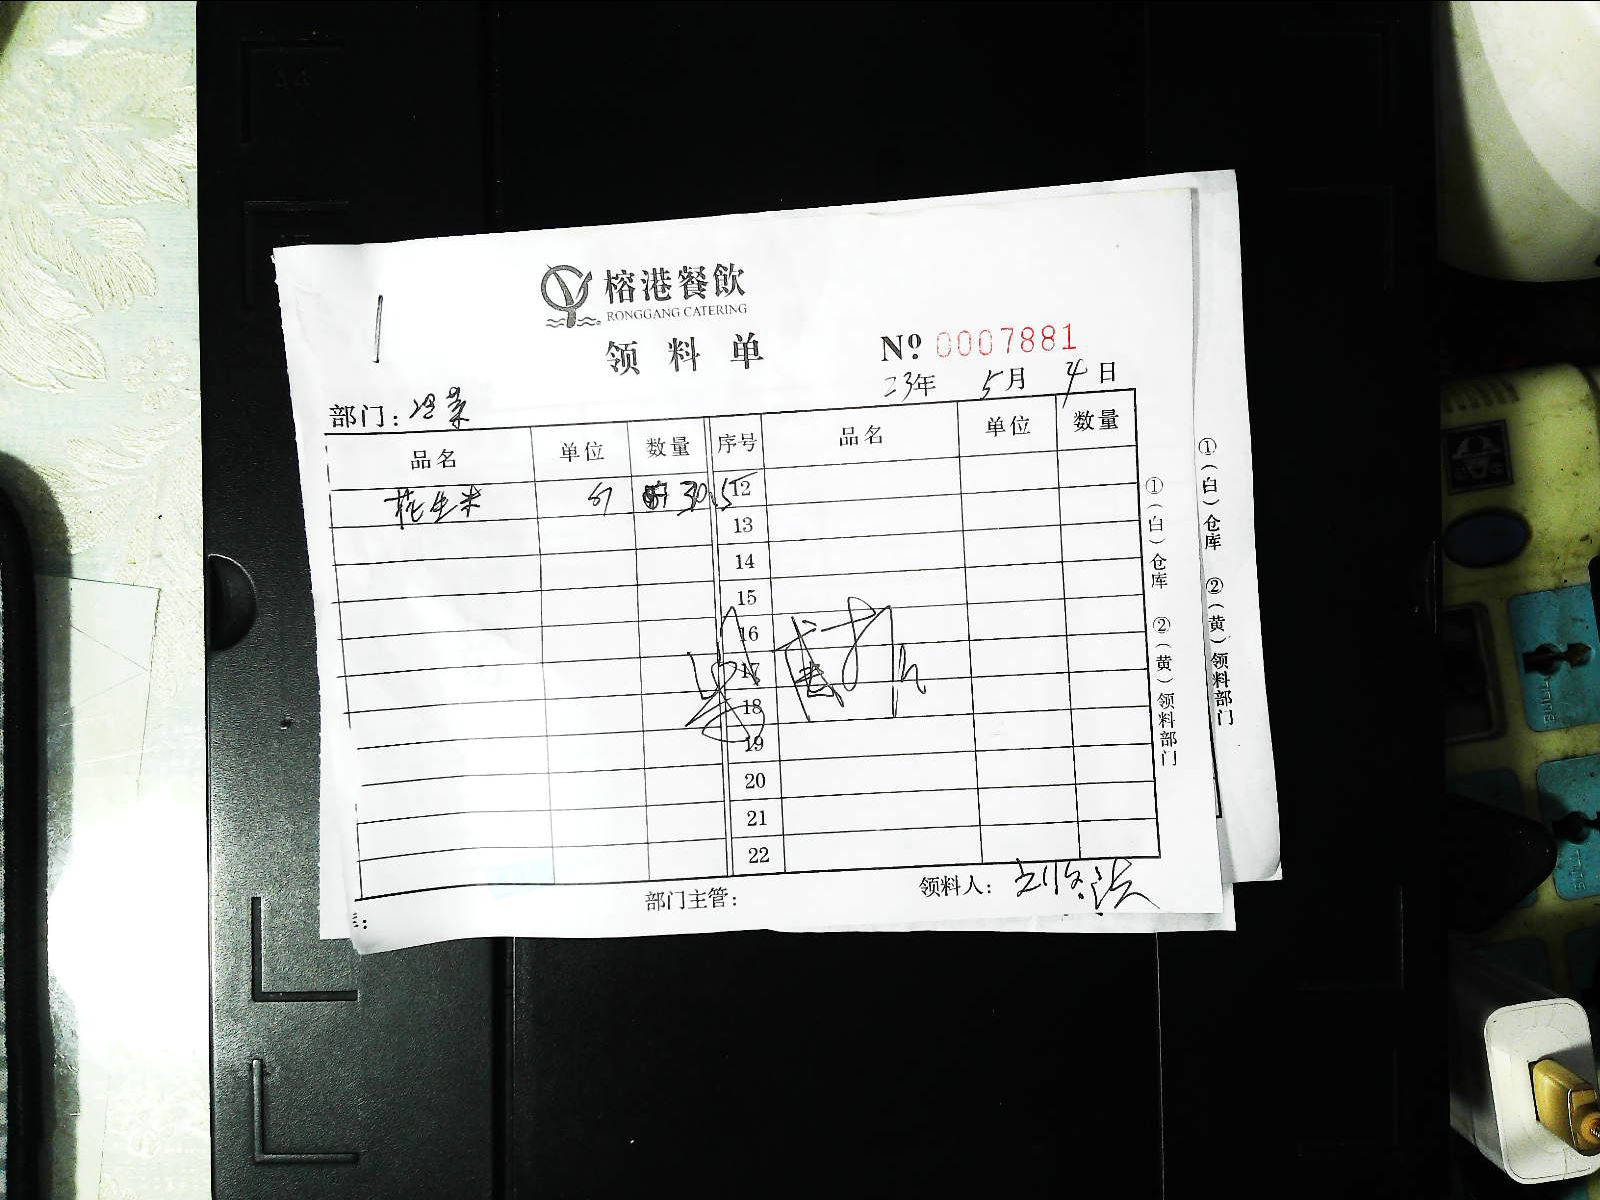 榕港餐飲
RONGGANG CATERING
领料单
№ 0007881
23年 5月 4日
部门：冷菜
品名 单位 数量 序号 品名 单位 数量
花生米 斤 30.5 12
13
14
15
16
17
18
19
20
21
22
部门主管： 领料人：
①（白）仓库 ②（黄）领料部门
①（白）仓库 ②（黄）领料部门